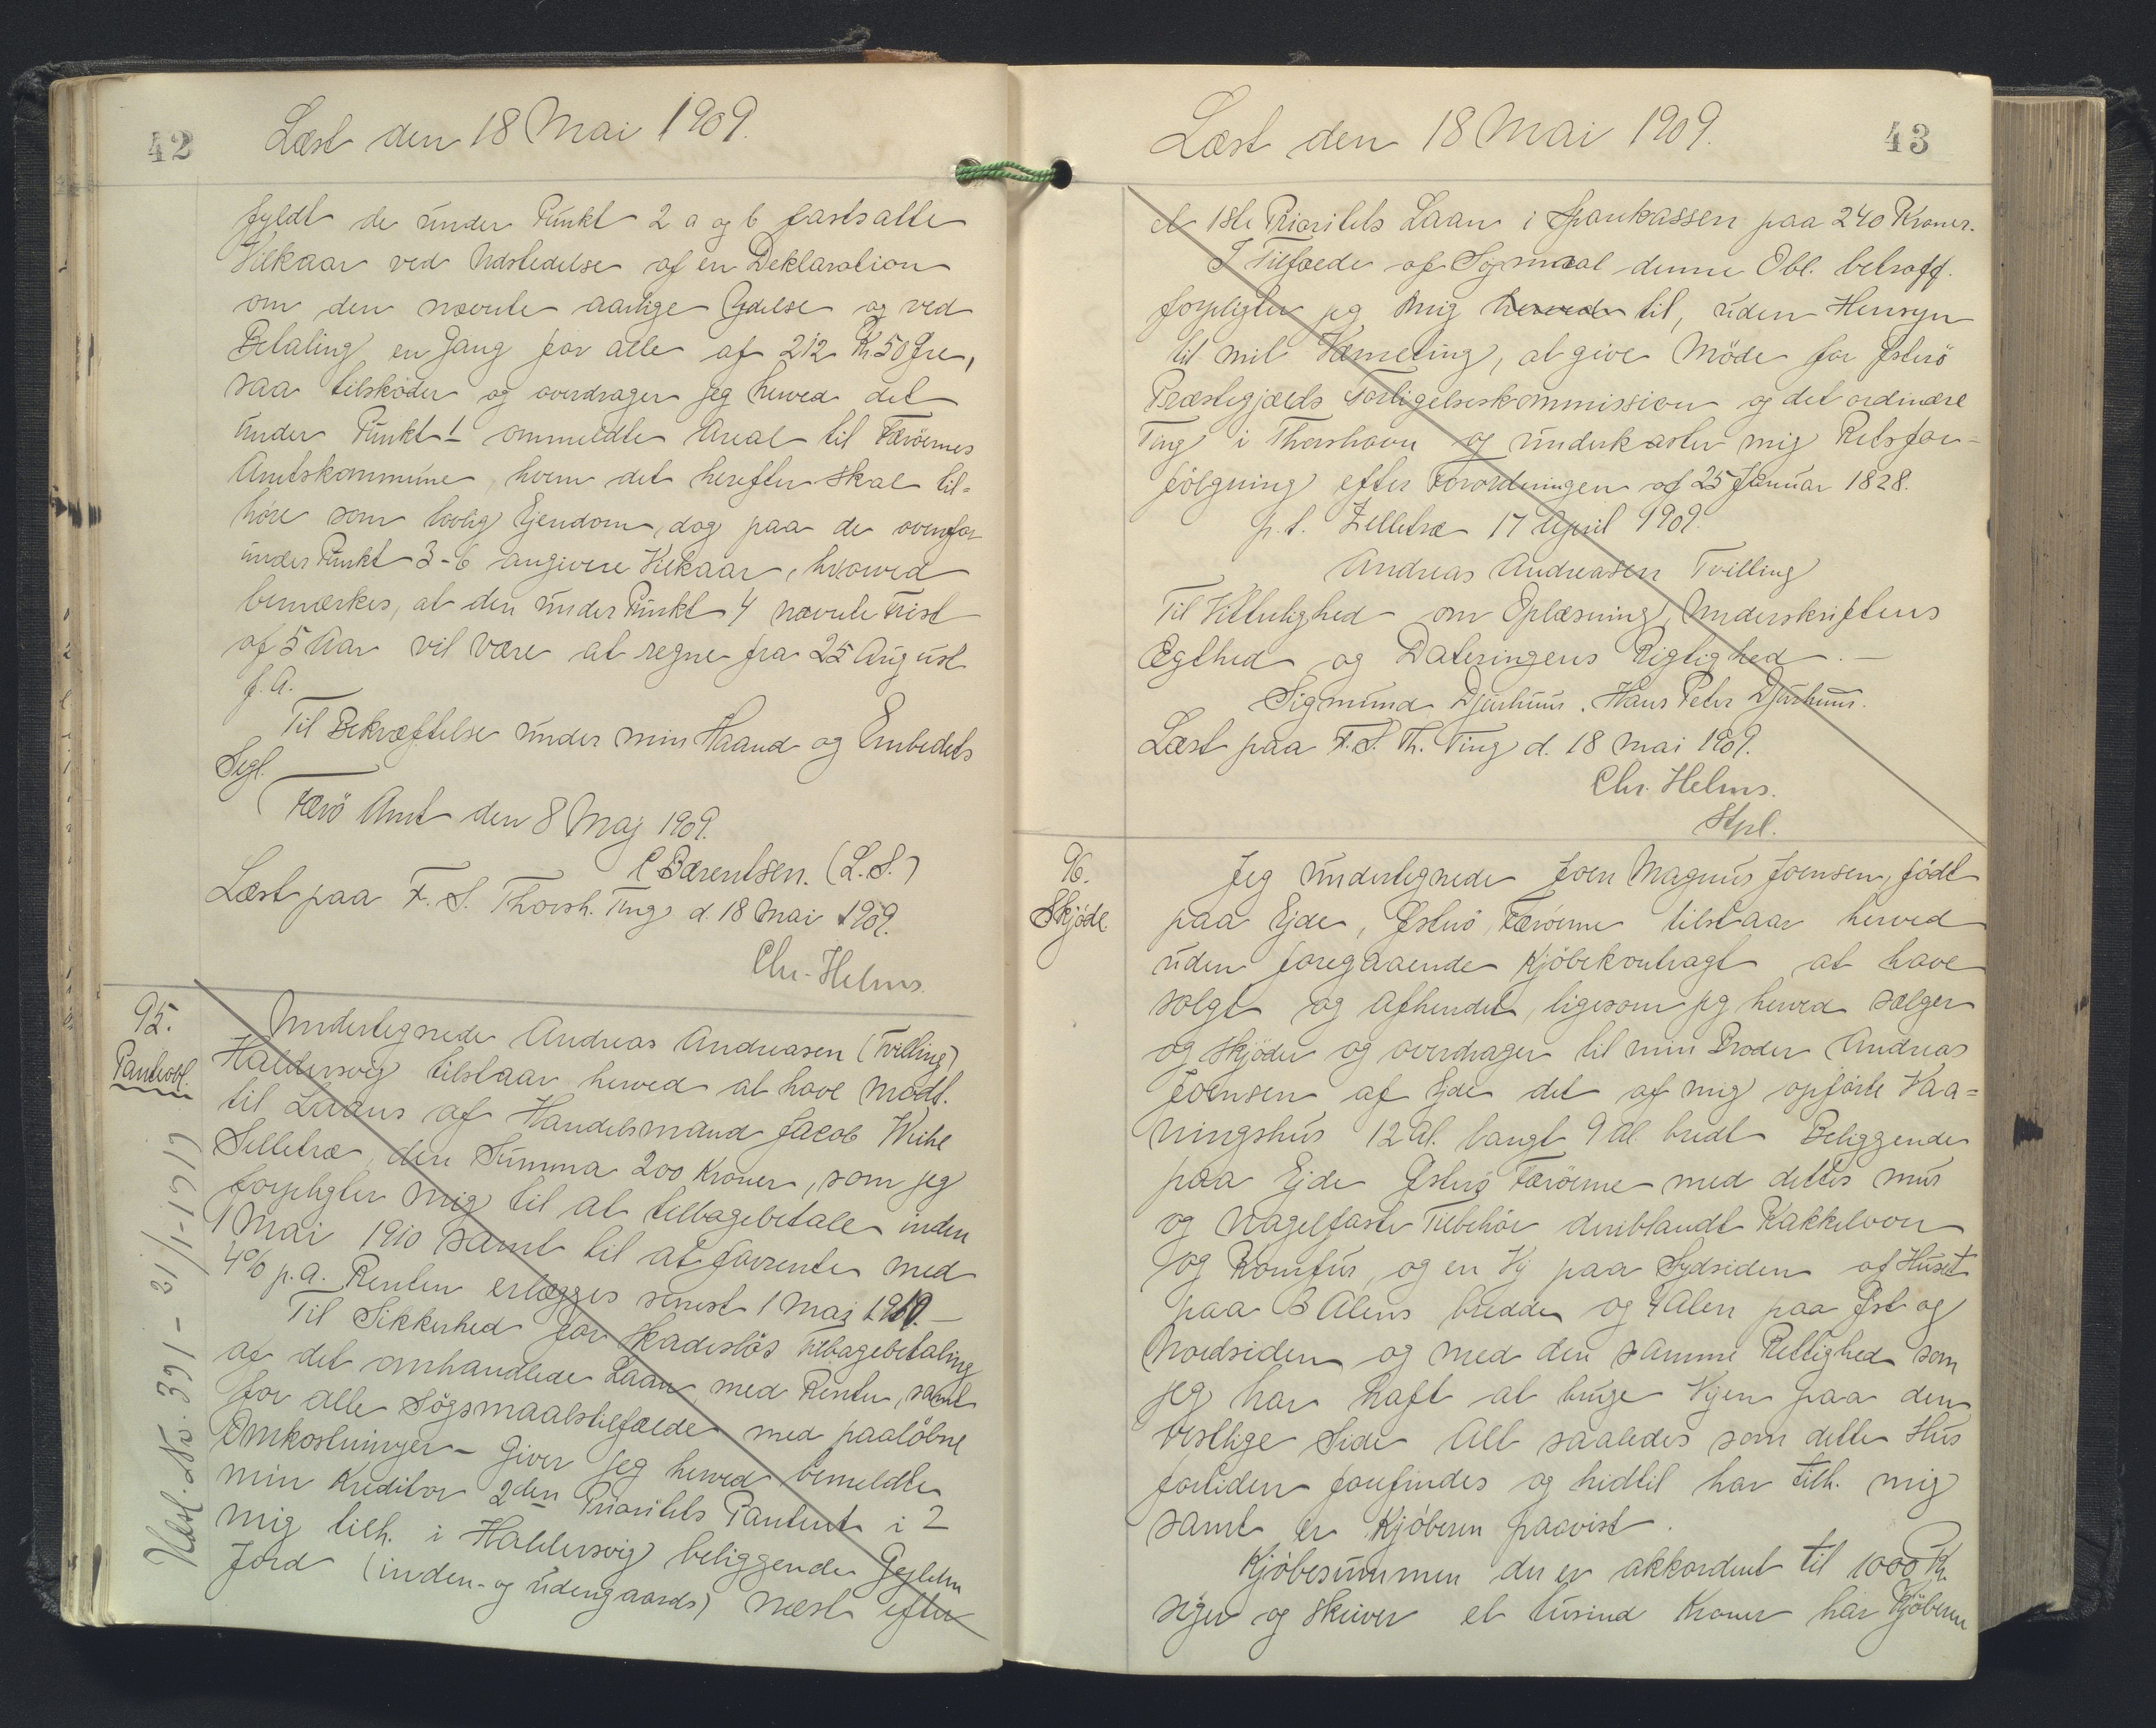 42
Læst den 18 Mai 1909.
fyldt de under Punkt 2 a og b fastsatte
Vilkaar ved Udstedelse af en Deklaration
om den nævnte aarlige Ydelse og ved
Betaling en Gang for alle af 212 Kr. 50 Øre,
saa tilskøder og overdrager jeg herved det
under Punkt 1 ommeldte Areal til Færøernes
Amtskommune, hvem det herefter skal til-
høre som lovlig Ejendom, dog paa de ovenfor
under Punkt 3-6 angivne Vilkaar, hvorved
bemærkes, at den under Punkt 4 nævnte Frist
af 5 Aar vil være at regne fra 25 August
f. A.
Til Bekræftelse under min Haand og Embedets
Segl.
Færö Amt den 8 Maj 1909.
C Bærentsen. (L.S.)
Læst paa F. S. Thorsh. Ting d. 18 Mai 1909.
Chr. Helms.
95.
Panteobl.
Undertegnede Andreas Andreasen (Tvilling)
Haldersvig tilstaar herved at have modt.
til Laans af Handelsmand Jacob Weihe
Selletræ, den Summa 200 Kroner, som jeg
forpligter mig til at tilbagebetale inden
1 Mai 1910 samt til at forrente med
4% p.a. Renten erlægges senest 1 Maj 1910.—
Til Sikkerhed for skadesløs Tilbagebetaling
af det omhandlede Laan, med Renter, samt
for alle Søgsmaalstilfælde med paaløbne
Omkostninger - Giver jeg herved bemeldte
min Kreditor 2den Prioritets Panteret i 2
mig tilh. i Haldersvig beliggende Gylden
Jord (inden- og udengaards) næst efter
No. 391 - 31/1-1917
43
Læst den 18 Mai 1909.
et 1ste Prioritets Laan i Sparekassen paa 240 Kroner.
I Tilfælde af Søgsmaal denne Obl. betræff.
forpligter jeg mig herved til, uden Hensyn
til mit Værneting, at give Möde for Østerö
Præstegjælds Forligelseskommission og det ordinære
Ting i Thorshavn og underkaster mig Retsfor-
følgning efter Forordningen af 25 Januar 1828.
p.t. Zelletræ 17 April 1909.
Andreas Andreasen Tvilling
Til Vitterlighed om Oplæsning, Underskriftens
Ægthed og Dateringens Rigtighed.—
Sigmund Djurhuus. Hans Peter Djurhuus.
Læst paa F. S. Th. Ting d. 18 Mai 1909.
Chr. Helms.
Stpl.
96.
Skjöde
Jeg undertegnede Joen Magnus Joensen, født
paa Ejde, Østerö, Færöerne tilstaar herved
uden foregaaende Kjöbekontragt at have
solgt og afhendet, ligesom jeg herved sælger
og skjöder og overdrager til min Broder Andreas
Joensen af Ejde det af mig opførte Vaa-
ningshus 12 Al. langt 9 Al. bredt Beliggende
paa Ejde Østerö Færöerne med dettes mur
og nagelfaste Tilbehör deriblandt Kakkelovn
og Komfur, og en Vej paa Sydsiden af Huset
paa 3 Alens bredde og 4 Alen paa Øst og
Nordsiden og med den samme Rettighed som
jeg har haft at bruge Vejen paa den
vestlige Side Alt saaledes som dette Hus
fortiden forefindes og hidtil har tilh. mig
samt er Kjöberen paavist.
Kjöbesummen der er akkorderet til 1000 Kr.
siger og skriver et tusind Kroner har Kjöberen